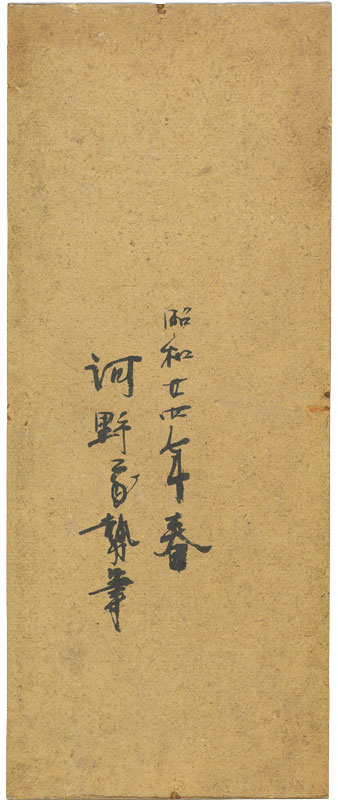 昭和廿四年春
河野家執筆